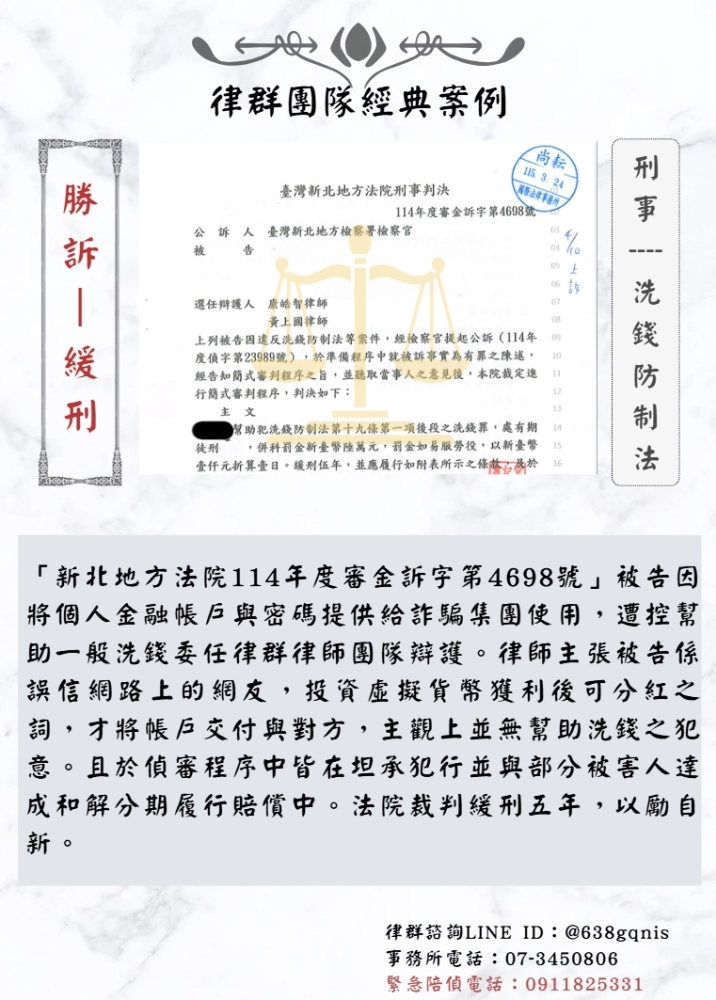 律群團隊經典案例
勝訴—緩刑
尚耘
115. 3. 24
國際法律事務所
臺灣新北地方法院刑事判決
114年度審金訴字第4698號
公訴人 臺灣新北地方檢察署檢察官
被告
選任辯護人 康皓智律師
黃上國律師
上列被告因違反洗錢防制法等案件，經檢察官提起公訴（114年
度偵字第23989號），於準備程序中就被訴事實為有罪之陳述，
經告知簡式審判程序之旨，並聽取當事人之意見後，本院裁定進
行簡式審判程序，判決如下：
主文
幫助犯洗錢防制法第十九條第一項後段之洗錢罪，處有期
徒刑 ，併科罰金新臺幣陸萬元，罰金如易服勞役，以新臺幣
壹仟元折算壹日。緩刑伍年，並應履行如附表所示之條款，及於
03
04
05
06
07
08
09
10
11
12
13
14
15
16
4/10上訴
刑事----洗錢防制法
「新北地方法院114年度審金訴字第4698號」被告因
將個人金融帳戶與密碼提供給詐騙集團使用，遭控幫
助一般洗錢委任律群律師團隊辯護。律師主張被告係
誤信網路上的網友，投資虛擬貨幣獲利後可分紅之
詞，才將帳戶交付與對方，主觀上並無幫助洗錢之犯
意。且於偵審程序中皆在坦承犯行並與部分被害人達
成和解分期履行賠償中。法院裁判緩刑五年，以勵自
新。
律群諮詢LINE ID：@638gqnis
事務所電話：07-3450806
緊急陪偵電話：0911825331